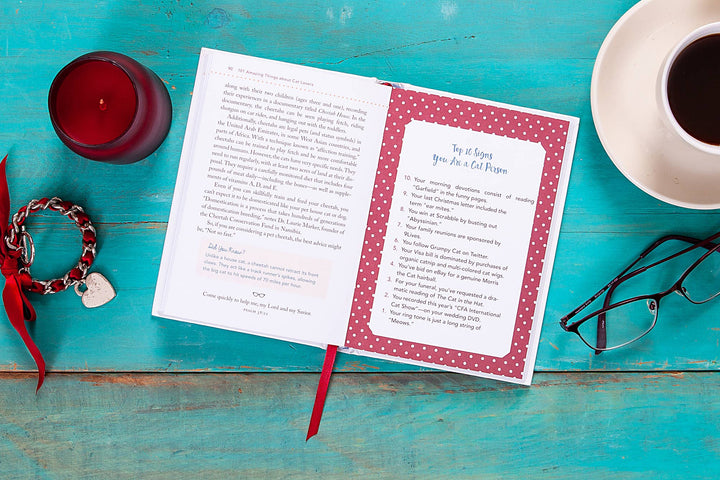 92 101 Amazing Things about Cat Lovers
along with two children (ages three and one), recording
their experiences in a documentary titled Cheetah House. In the
documentary, the cheetahs can be seen playing fetch, riding
shotgun on car rides, and hanging out with the toddlers.
Additionally, cheetahs are legal pets (and status symbols) in
the United Arab Emirates, in some West Asian countries, and
parts of Africa. With a technique known as "affection training,"
cheetahs can be trained to play fetch and be more comfortable
around humans. However, the cats have very specific needs. They
need to run regularly, with at least two acres of land at their dis-
posal. They require a carefully monitored diet that includes four
pounds of meat daily—including the bones—as well as supple-
ments of vitamins A, D, and E.
Even if you can skillfully train and feed your cheetah, you
can't expect it to be domesticated like your pet house cat or dog.
"Domestication is a process that takes hundreds of generations
of domestication breeding," notes Dr. Laurie Marker, founder of
the Cheetah Conservation Fund in Namibia.
So, if you are considering a pet cheetah, the best advice might
be, "Not so fast."
Did You Know?
Unlike a house cat, a cheetah cannot retract its front
claws. They act like a track runner's spikes, allowing
the big cat to hit speeds of 70 miles per hour.
Come quickly to help me, my Lord and my Savior.
PSALM 38:22
Top 10 Signs
You Are a Cat Person
10. Your morning devotions consist of reading
"Garfield" in the funny pages.
9. Your last Christmas letter included the
term "ear mites."
8. You win at Scrabble by busting out
"Abyssinian."
7. Your family reunions are sponsored by
9Lives.
6. You follow Grumpy Cat on Twitter.
5. Your Visa bill is dominated by purchases of
organic catnip and multi-colored cat wigs.
4. You've bid on eBay for a genuine Morris
the Cat hairball.
3. For your funeral, you've requested a dra-
matic reading of The Cat in the Hat.
2. You recorded this year's "CFA International
Cat Show"—on your wedding DVD.
1. Your ring tone is just a long string of
"Meows."